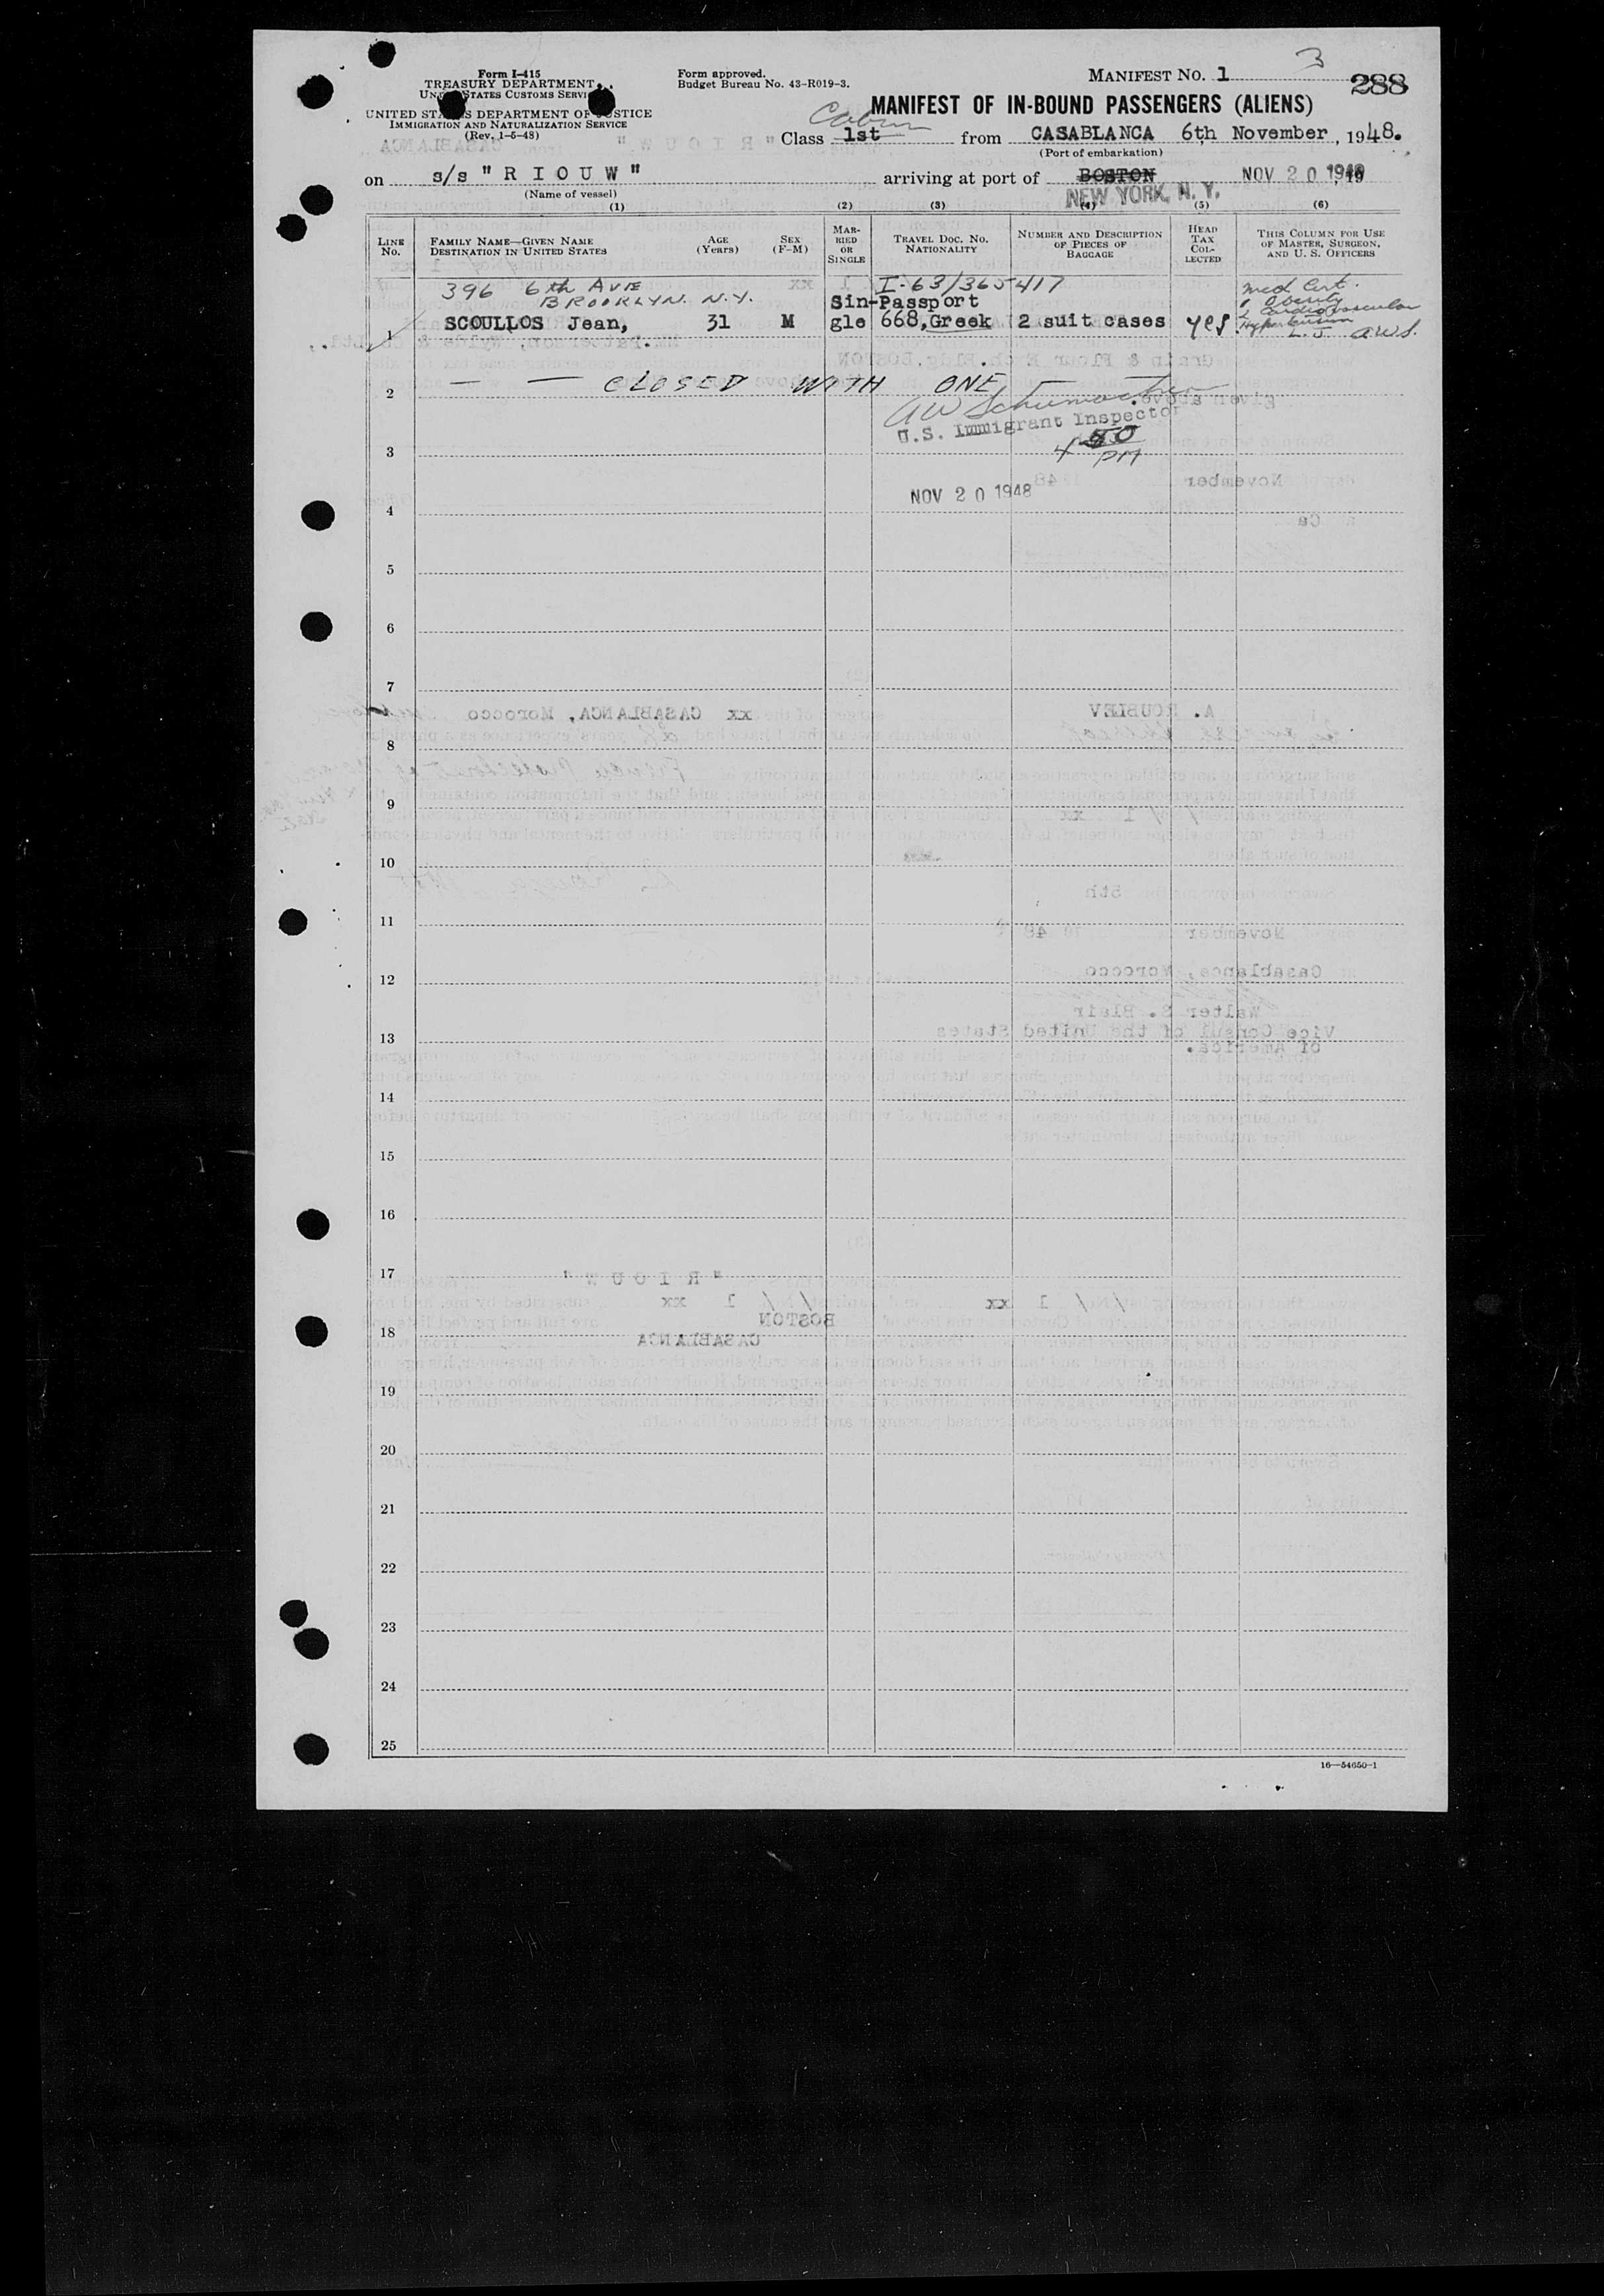 Form I-415
TREASURY DEPARTMENT
UNITED STATES CUSTOMS SERVICE
UNITED STATES DEPARTMENT OF JUSTICE
IMMIGRATION AND NATURALIZATION SERVICE
(Rev. 1-5-48)
Form approved.
Budget Bureau No. 43-R019-3.
MANIFEST No. 1
3
288
MANIFEST OF IN-BOUND PASSENGERS (ALIENS)
Cabin
Class 1st from CASABLANCA 6th November, 1948.
(Port of embarkation)
on s/s "R I O U W" arriving at port of BOSTON NOV 20 1948, 19
(Name of vessel)
NEW YORK, N. Y.
(1) (2) (3) (4) (5) (6)
LINE No.
FAMILY NAME—GIVEN NAME
DESTINATION IN UNITED STATES
AGE (Years)
SEX (F-M)
MARRIED OR SINGLE
TRAVEL DOC. NO. NATIONALITY
NUMBER AND DESCRIPTION OF PIECES OF BAGGAGE
HEAD TAX COLLECTED
THIS COLUMN FOR USE OF MASTER, SURGEON, AND U. S. OFFICERS
396 6th AVE I-63/365417 Med Cert.
BROOKLYN. N.Y. Sin-Passport 1 Obesity
1 SCOULLOS Jean, 31 M gle 668, Greek 2 suit cases yes. 2 Cardiovascular
Hypertension
L.J. AWS.
2 — — CLOSED WITH ONE — —
AW Schumacher
U.S. Immigrant Inspector
3 4 50 PM
NOV 20 1948
4
5
6
7
8
9
10
11
12
13
14
15
16
17
18
19
20
21
22
23
24
25
16—54650-1